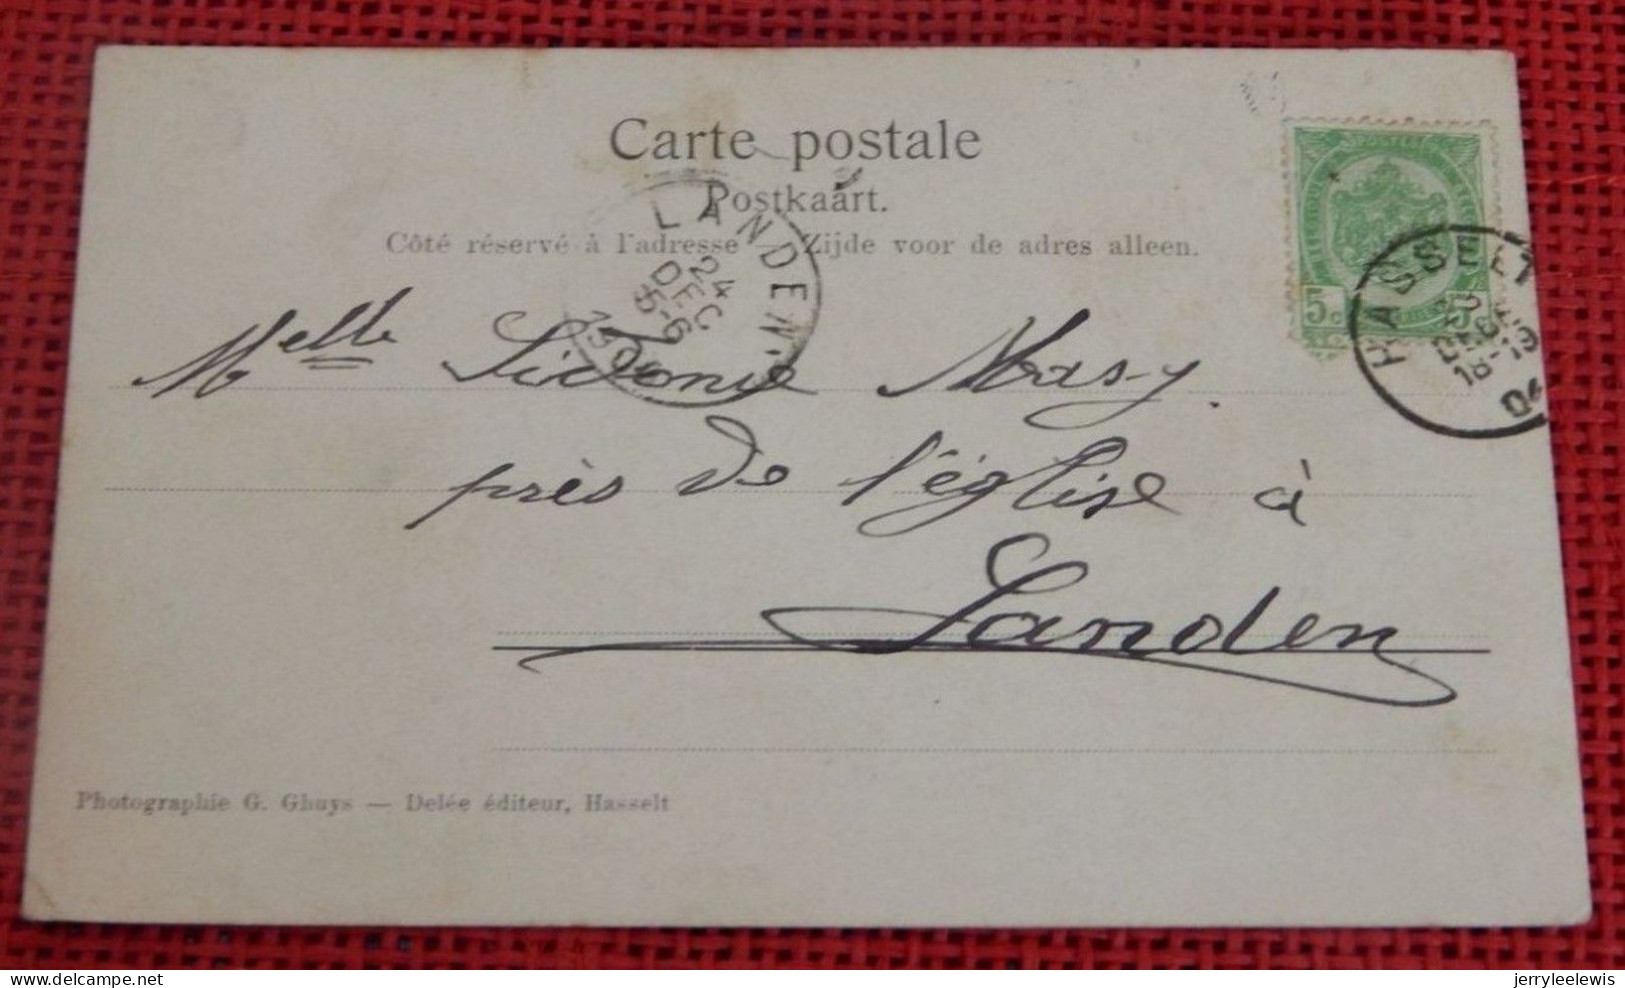 Carte postale
Postkaart.
Côté réservé à l'adresse Zijde voor de adres alleen.
LANDEN
24
DEC
5-6
POSTES
5c 5c
HASSELT
DEC
18-19
04
Melle Sidonie Masy.
près de l'église à
Landen
Photographie G. Ghuys — Delée éditeur, Hasselt
delcampe.net
jerryleelewis